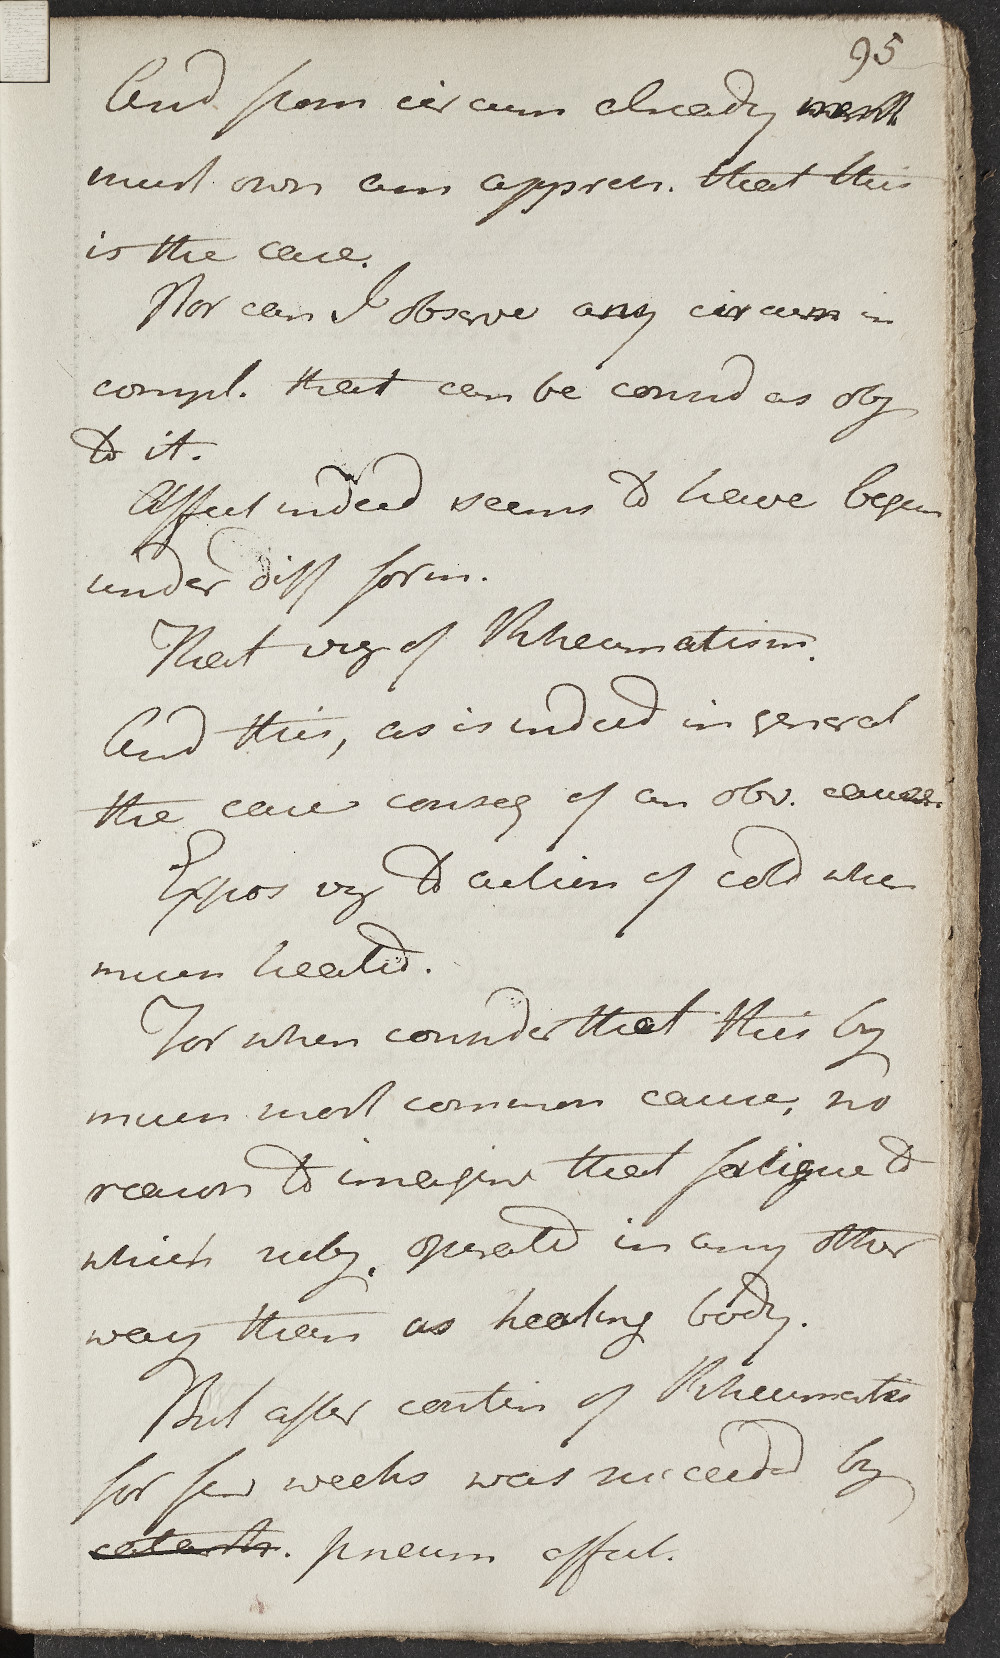 95
And from circum already ment
must own am appreh. that this
is the case.
Nor can I observe any circum in
compl. that can be considd as obj
to it.
Affect indeed seems to have begun
under diff form.
That viz of Rheumatism.
And this, as is indeed in general
the case conseq of an obv. cause.
Expos viz to action of cold when
much heated.
For when consider that this by
much most common cause, no
reason to imagine that fatigue to
which subj. operated in any other
way than as heating body.
But after contin of Rheumatis
for few weeks was succeeded by
catarrh. pneum affect.